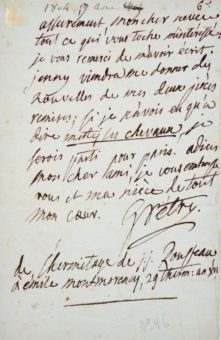 assurement mon cher neveu
tout ce qui vous touche m'interesse
je vous remercie de m'avoir écrit.
jenny viendra me donner des
nouvelles de mes deux nièces
si je n'avois eu qu'à
dire mettez les chevaux, je
serois parti pour paris. adieu
mon cher ami, je vous embrasse
vous et ma nièce de tout
mon cœur.
Grétry.
de l'hermitage de j.j. Rousseau
à emile montmorency, 29 therm: an
n° 46